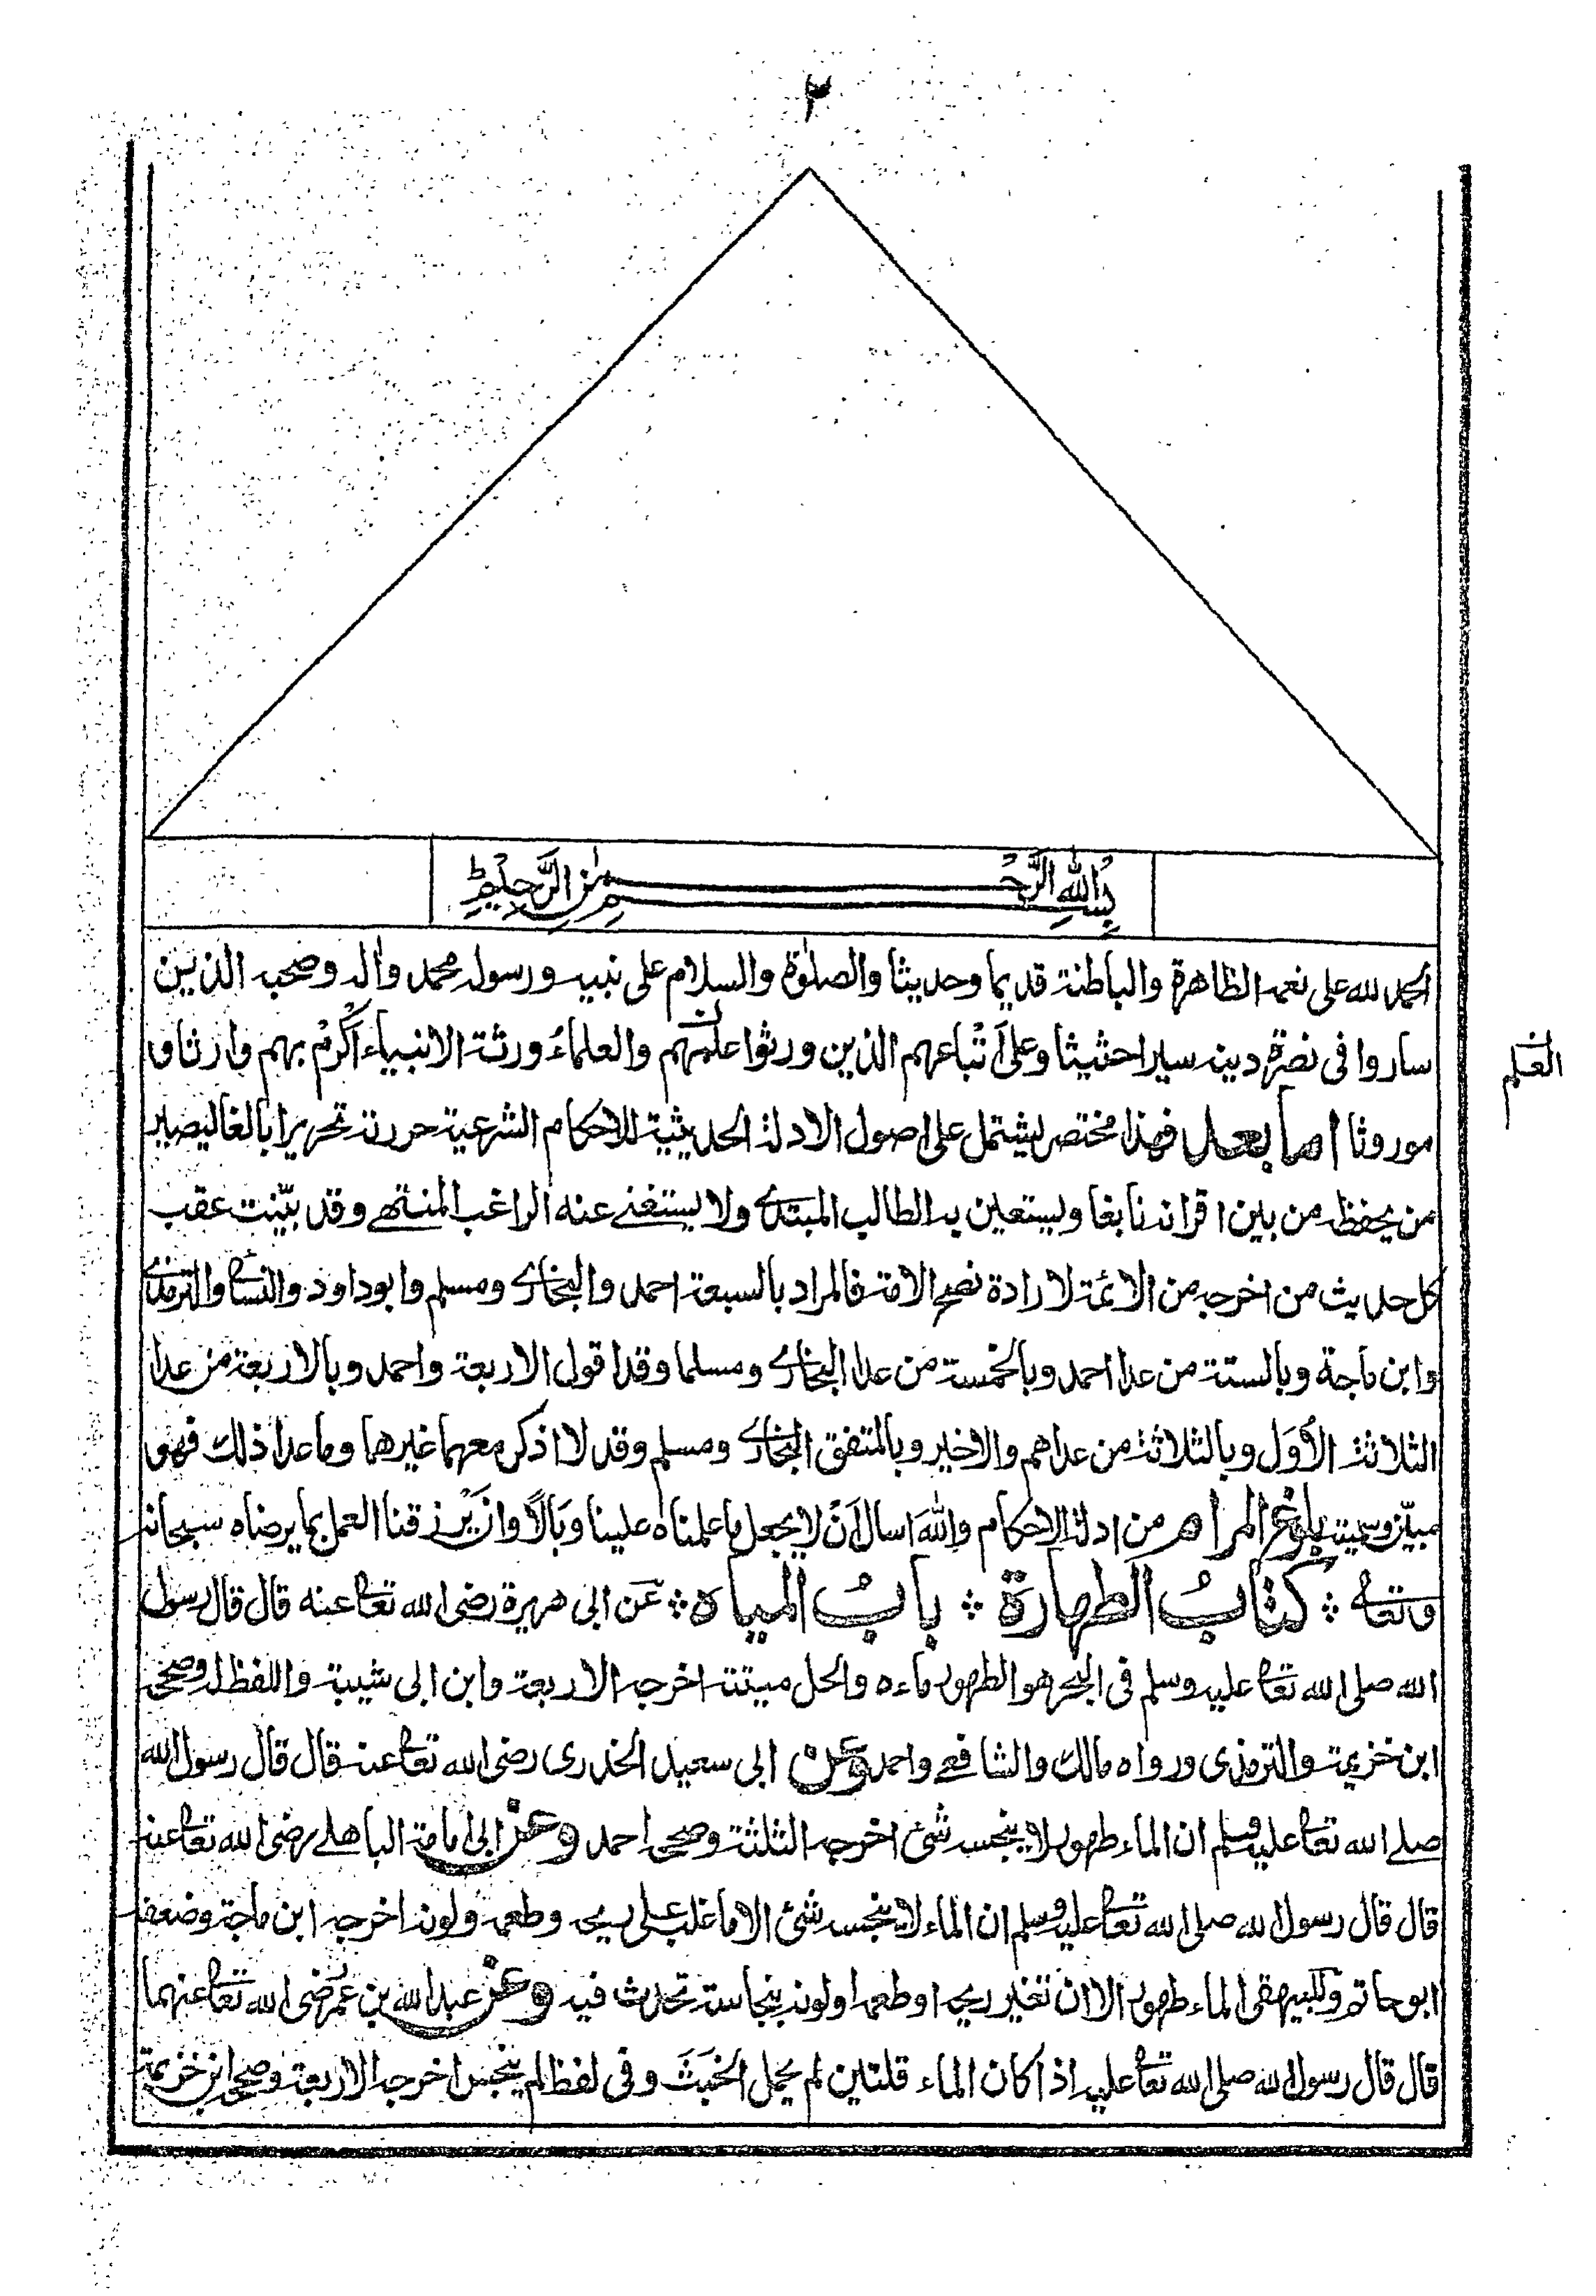 ٢
بسم الله الرحمن الرحيم
الحمد لله على نعمه الظاهرة والباطنة قديما وحديثا والصلوٰة والسلام على نبيه ورسوله محمد وآله وصحبه الذين
ساروا فى نصرة دينه سيرا حثيثا وعلى أتباعهم الذين ورثوا علمهم والعلماءُ ورثة الانبياء أكرِمْ بهم وارثا و
العلم
موروثا اما بعد فهذا مختصر يشتمل على اصول الادلة الحديثية للاحكام الشرعية حررته تحريرا بالغا ليصير
من يحفظه من بين اقرانه نابغا ويستعين به الطالب المبتدى ولا يستغنى عنه الراغب المنتهى وقد بيّنت عقب
كل حديث من اخرجه من الائمة لارادة نصح الامة فالمراد بالسبعة احمد والبخارى ومسلم وابوداود والنسائى والترمذى
وابن ماجة وبالستة من عدا احمد وبالخمسة من عدا البخارى ومسلما وقد اقول الاربعة واحمد وبالاربعة من عدا
الثلاثة الأُوَل وبالثلاثة من عداهم والاخير وبالمتفق البخارى ومسلم وقد لا اذكر معهما غيرهما وما عدا ذلك فهو
مبيّن وسميته بلوغ المرام من ادلة الاحكام واللهَ اسال أنْ لا يجعل ما علمناه علينا وَبَالًا وان يَّرزقنا العمل بما يرضاه سبحانه
وتعالى ؞ كتابُ الطهارة ؞ بابُ المياه ؞ عَن ابى هريرة رضى الله تعالى عنه قال قال رسول
الله صلى الله تعالى عليه وسلم فى البحر هو الطهور ماءه والحل ميتته اخرجه الاربعة وابن ابى شيبة واللفظ له وصححه
ابن خزيمة والترمذى ورواه مالك والشافعى واحمد وعن ابى سعيد الخدرى رضى الله تعالى عنه قال قال رسول الله
صلى الله تعالى عليه وسلم ان الماء طهور لا ينجسه شئ اخرجه الثلثة وصححه احمد وعن ابى امامة الباهلى رضى الله تعالى عنه
قال قال رسول الله صلى الله تعالى عليه وسلم ان الماء لا ينجسه شئ الا ما غلب على ريحه وطعمه ولونه اخرجه ابن ماجة وضعفه
ابو حاتم وللبيهقى الماء طهور الا ان تغير ريحه او طعمه او لونه بنجاسة تحدث فيه وعن عبد الله بن عمر رضى الله تعالى عنهما
قال قال رسول الله صلى الله تعالى عليه اذا كان الماء قلتين لم يحمل الخَبَثَ وفى لفظ لم ينجس اخرجه الاربعة وصححه ابن خزيمة